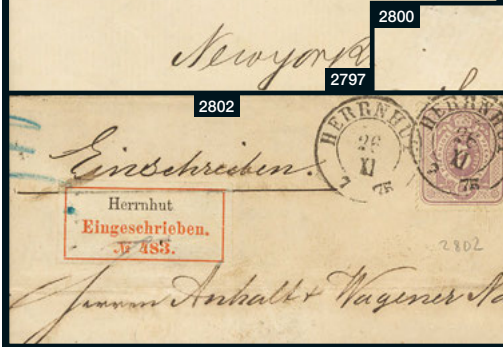 2800
Newyork
2797
2802
HERRNHUT
26
XI
75
HERRNHUT
26
XI
75
Einschreiben.
Herrnhut
Eingeschrieben.
№ 483.
2802
Herren Anhalt & Wagener